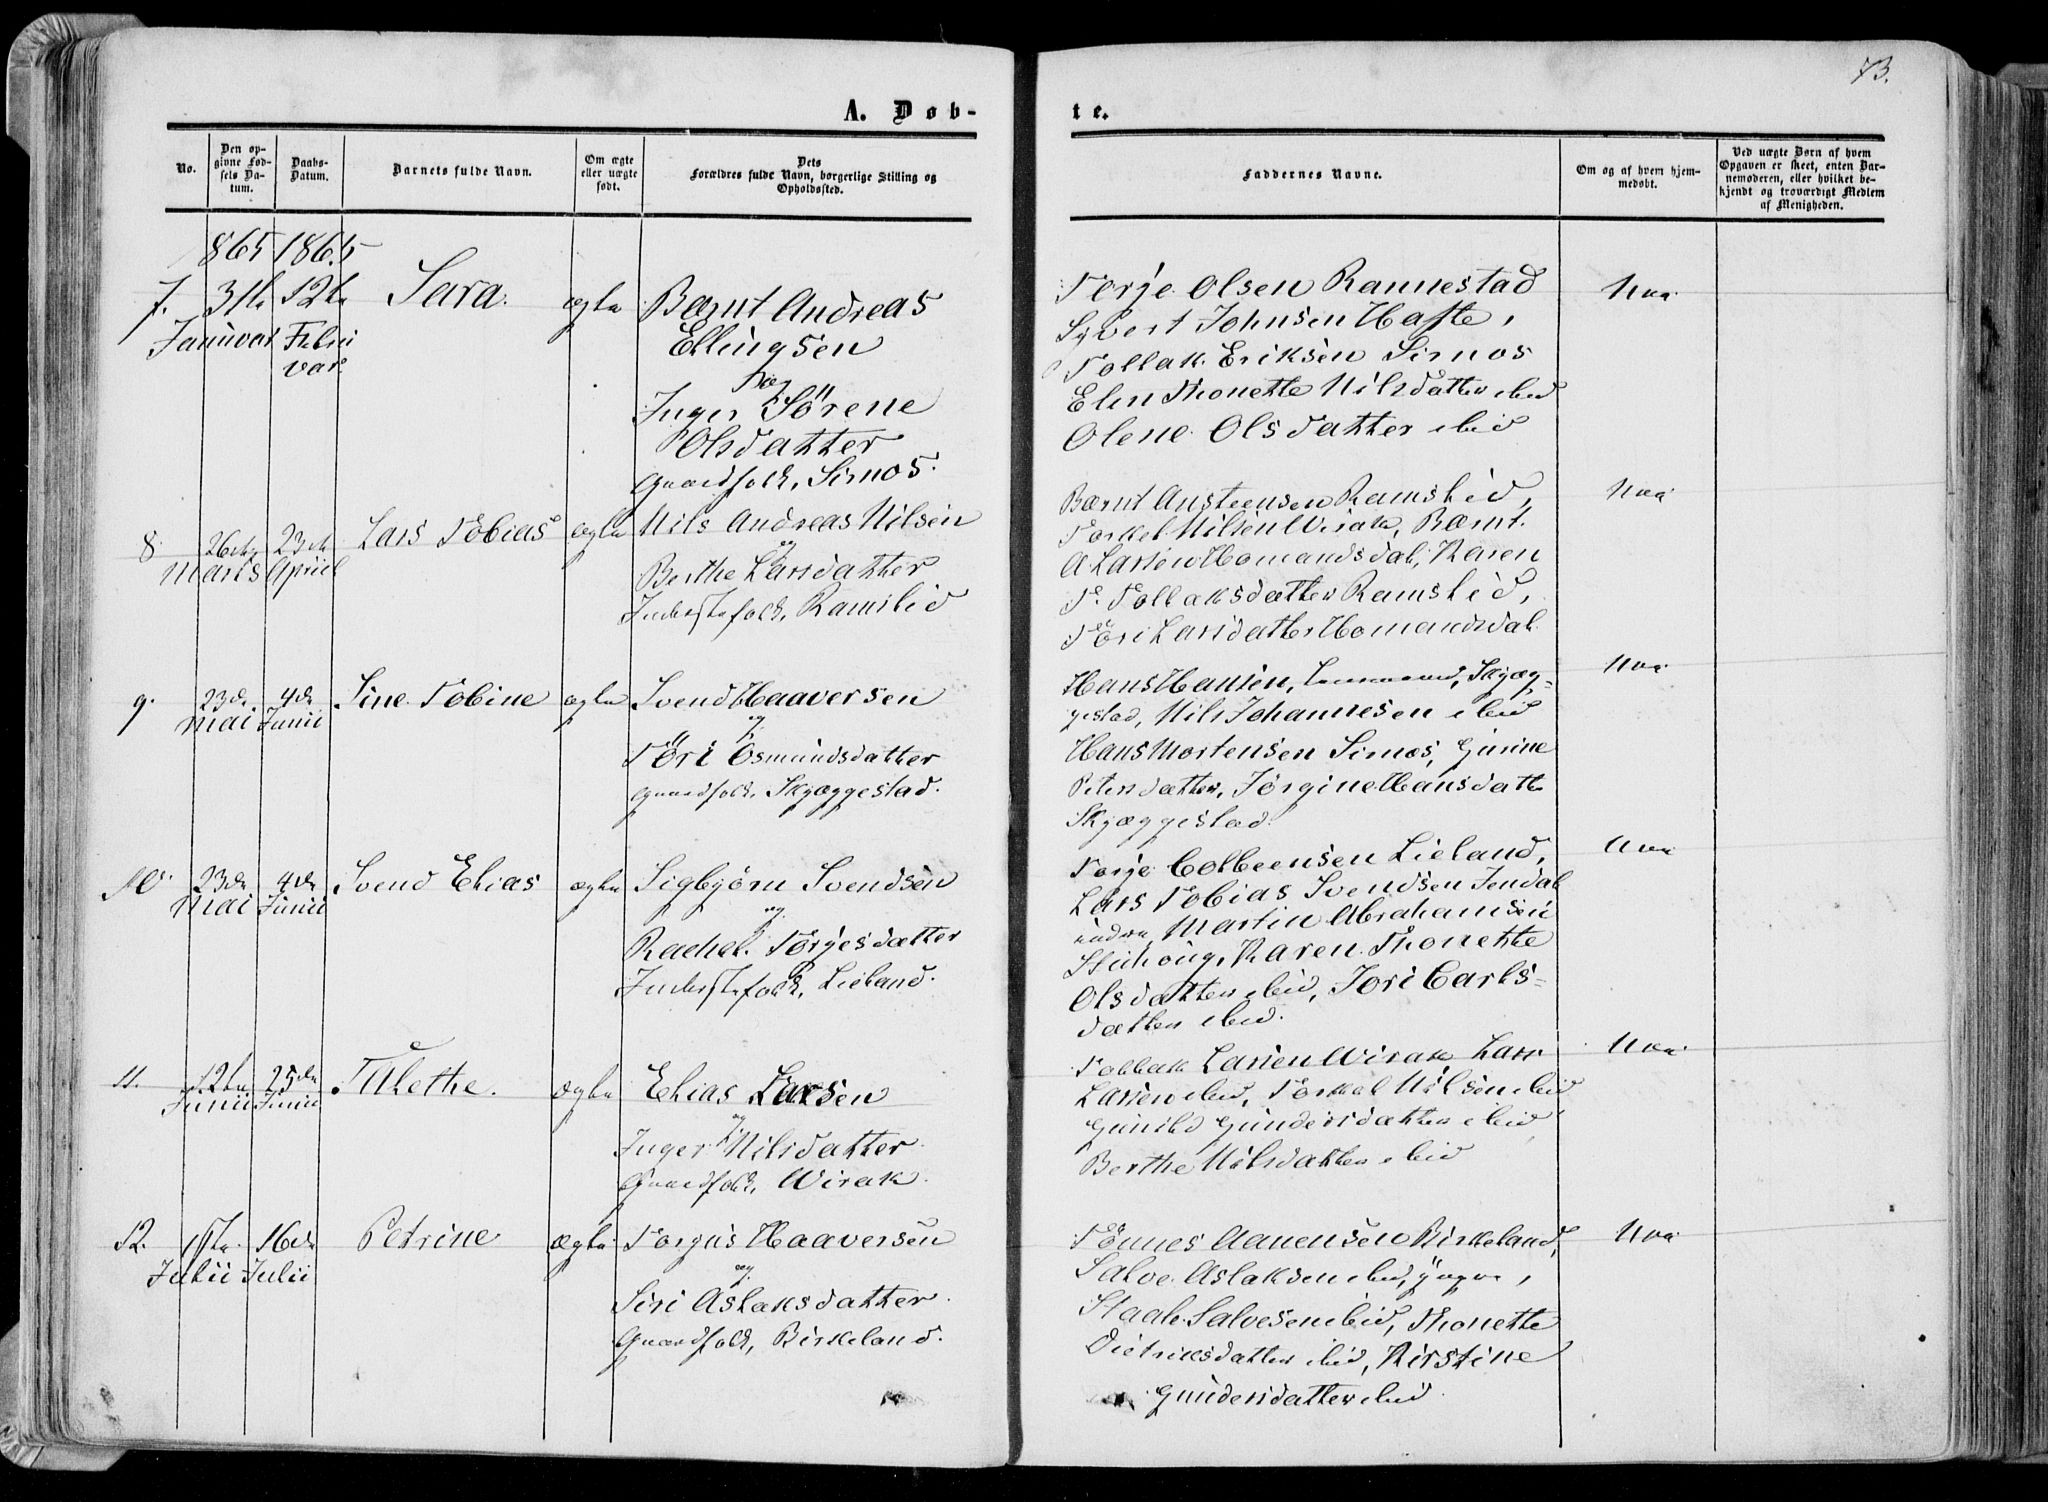 73.
A. Døb-
te.
No.
Den op-
givne Fød-
sels Da-
tum.
Daabs-
Datum.
Barnets fulde Navn.
Om ægte
eller uægte
født.
Dets
Forældres fulde Navn, borgerlige Stilling og
Opholdssted.
Faddernes Navne.
Om og af hvem hjem-
medøbt.
Ved uægte Børn af hvem
Opgaven er skeet, enten Bar-
nemoderen, eller hvilket be-
kjendt og troværdigt Medlem
af Menigheden.
1865 1865
7. 31te 12te Sara. ægte Bærnt Andreas
Januvar Februvar Ellingsen
og
Inger Sörene
Olsdatter
Gaardfolk, Sirnos.
Torje Olsen Rannestad
Syvert Johnsen
Tollak Eriksen Sirnos
Elen Thonette Nilsdatter ibid
Olene Olsdatter ibid
8. 26de 23de Lars Tobias ægte Nils Andreas Nilsen
Marts April og
Berthe Larsdatter
Inderstefolk, Ramslid
Bærnt Ansteensen Ramslid,
Torkel Nilsen Wirak, Bærnt
A. Larsen Homandsdal, Karen
T. Tollaksdatter Ramslid,
Töri Larsdatter Homandsdal
9. 23de 4de Sine Tobine ægte Svend Haaversen
Mai Junii og
Töri Osmundsdatter
Gaardfolk, Skjæggestad.
Hans Hansen, Skjæg-
gestad, Nils Johannesen ibid
Hans Mortensen Sirnos, Gurine
Petersdatter, Jørgine Hansdatter
Skjæggestad.
10. 23de 4de Svend Elias ægte Sigbjørn Svendsen
Mai Junii og
Rachel Torjesdatter
Inderstefolk, Lieland.
Torje Colbeensen Lieland,
Lars Tobias Svendsen
indre, Martin Abrahamsen
Karen Thonette
Olsdatter ibid, Jori Carls-
datter ibid.
11. 12te 25de Talethe. ægte Elias Larsen
Junii Junii og
Inger Nilsdatter
Gaardfolk, Wirak.
Tollak Larsen Wirak Lars
Larsen ibid, Torkel Nilsen ibid
Gunild Gundersdatter ibid
Berthe Nilsdatter ibid
12. 16de Petrine ægte Torgus Haaversen
Julii Julii og
Siri Aslaksdatter
Gaardfolk, Birkeland.
Tönnes Aanensen Birkeland,
Salve Aslaksen ibid,
Staale Salvesen ibid, Thonette
Dietriksdatter ibid, Kirstine
Gundersdatter ibid